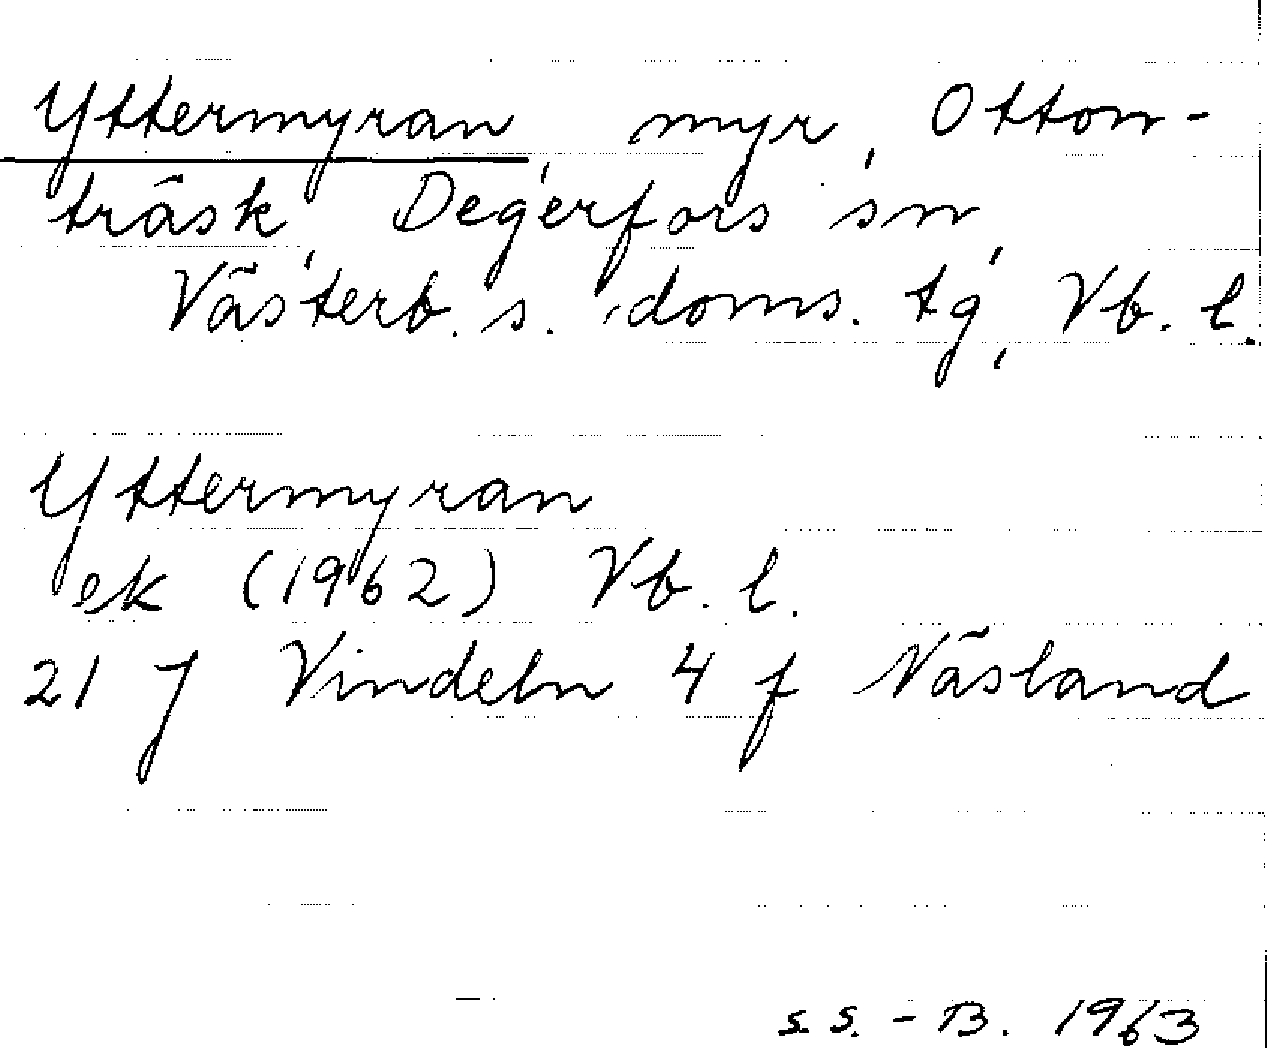 Yttermyran, myr, Otton-
träsk, Degerfors sn,
Västerb. s. doms. tg, Vb. l.
Yttermyran
ek (1962) Vb. l.
21 J Vindeln 4 f Näsland
S.S. - B. 1963